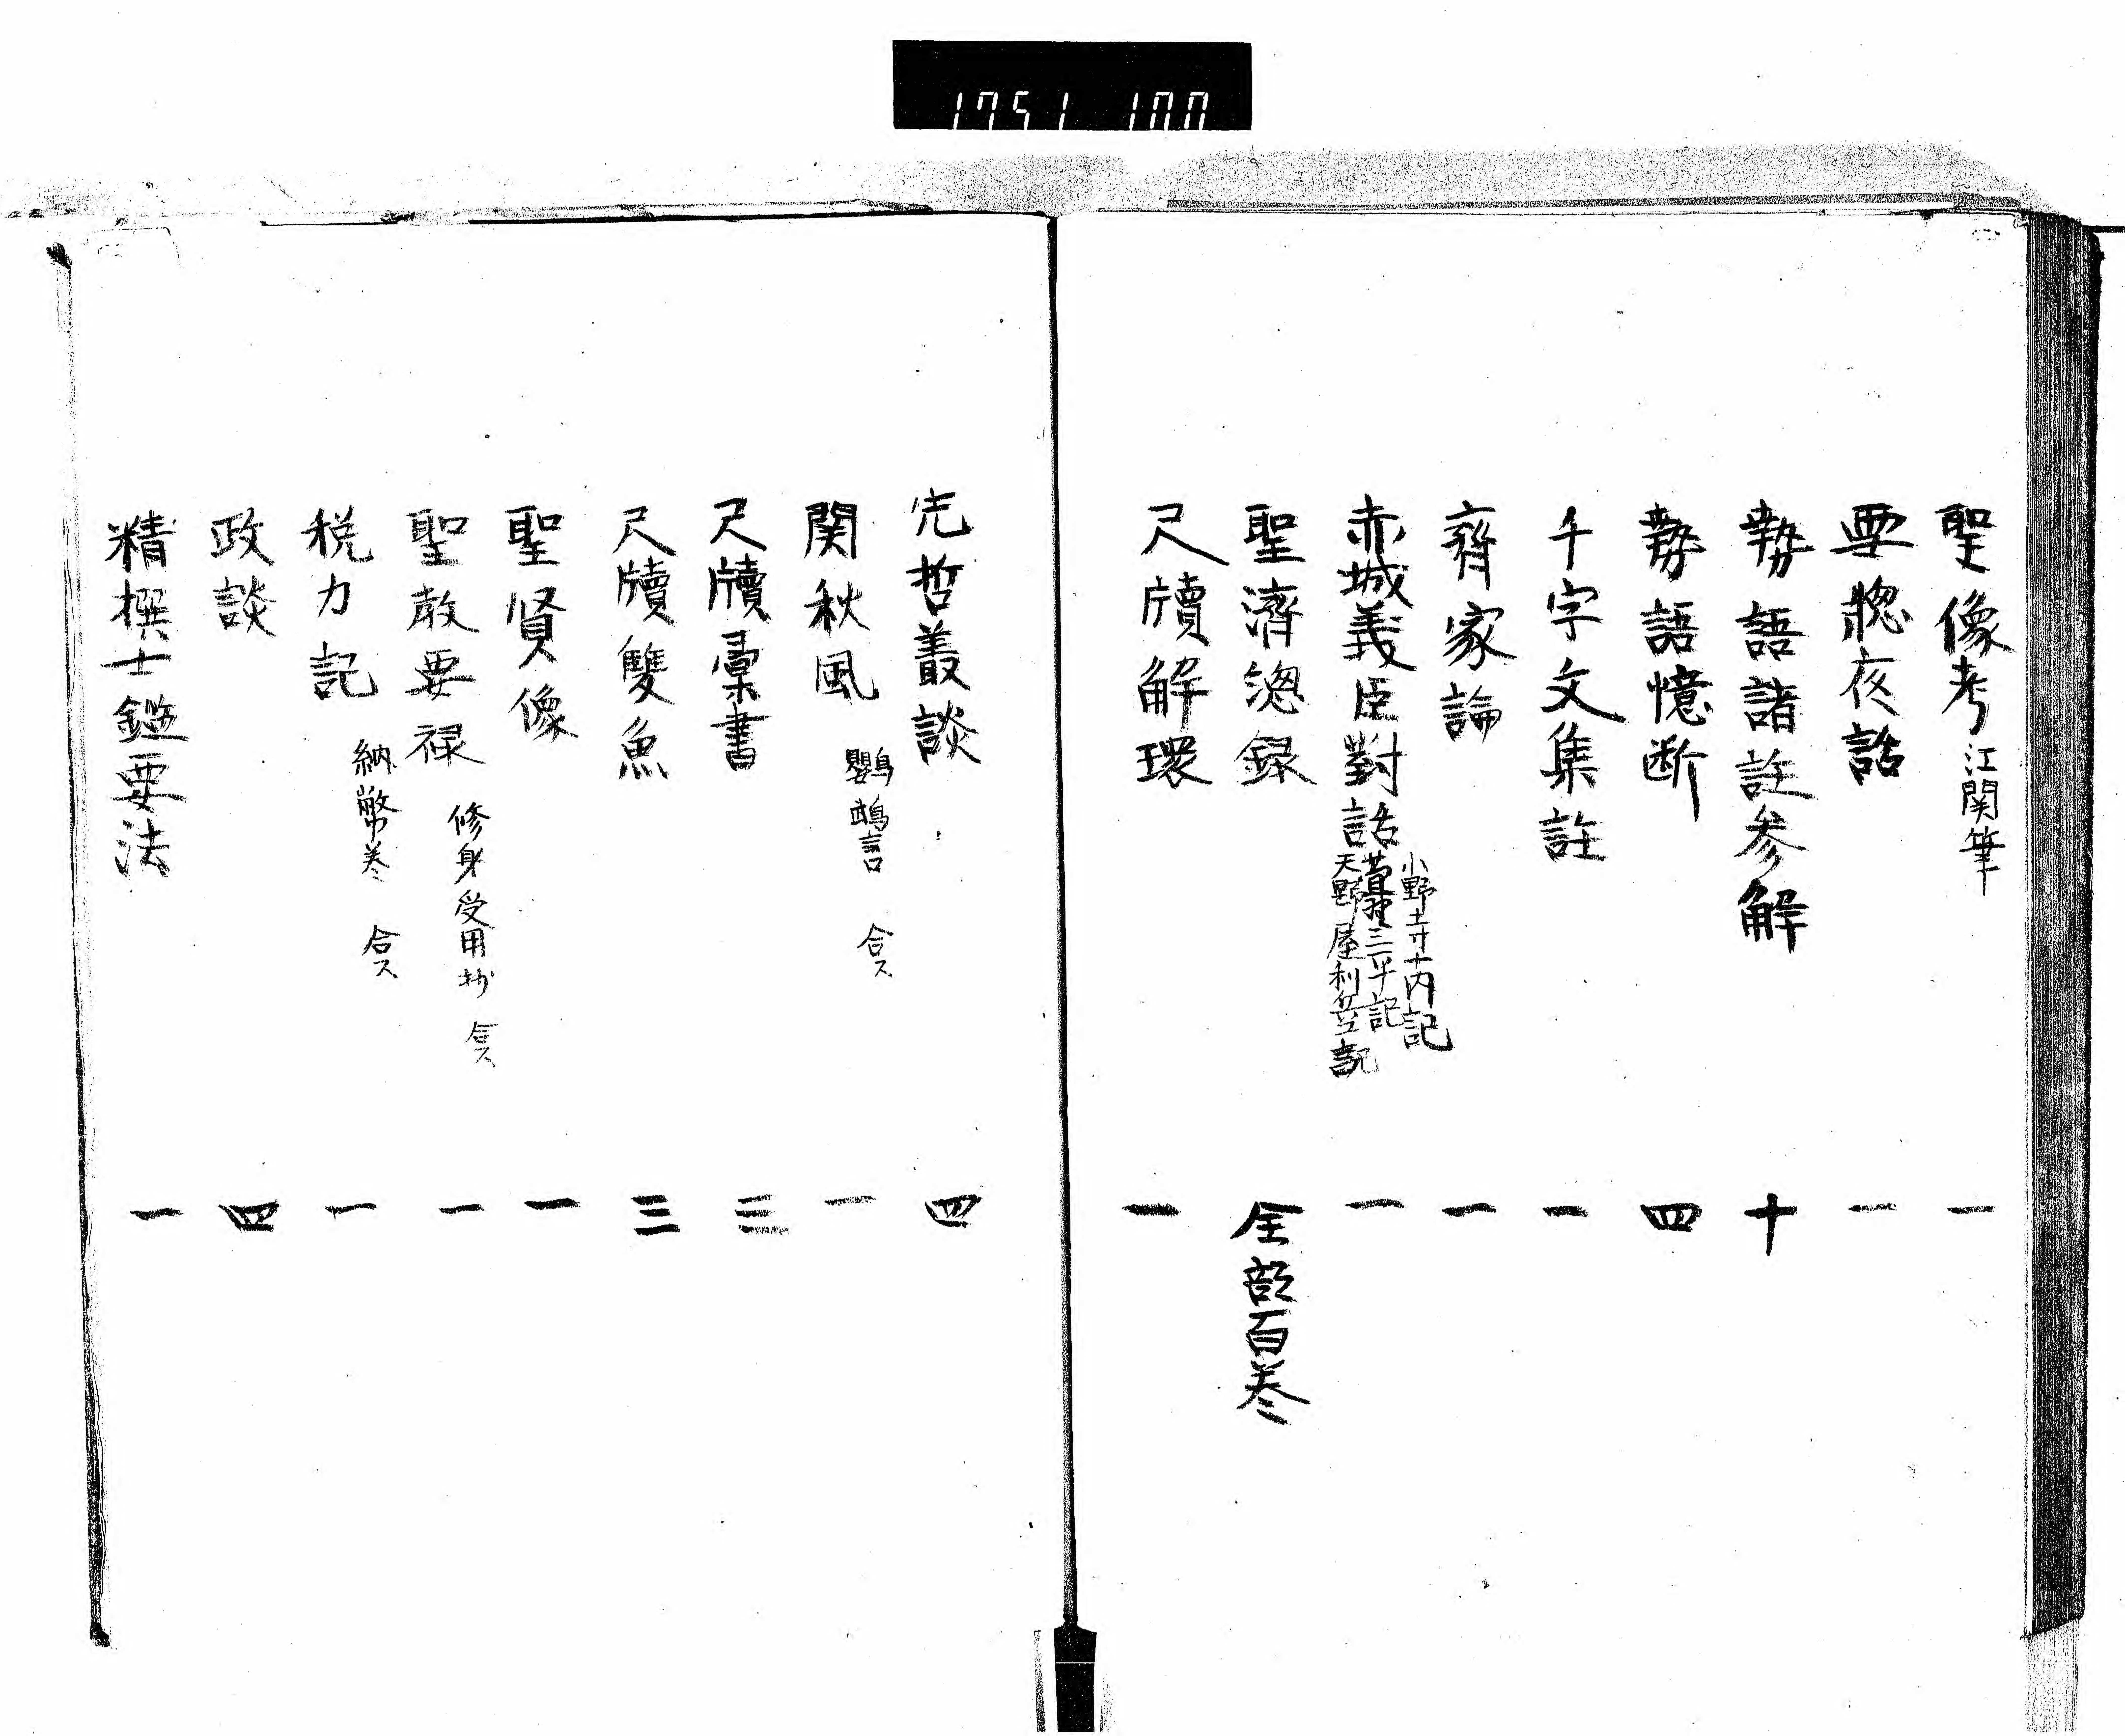 1751 100
聖像考 江関筆 一
要窓夜話 一
勢語諸註参解 十
勢語憶断 四
千字文集註 一
齊家論 一
赤城義臣對話 小野寺十内記 萱野三平記 天野屋利兵衛記 一
聖濟總録 全部百巻
尺牘解環 一
先哲叢談 四
関秋風 鸚鵡言 合ス 一
尺牘彙書 三
尺牘雙魚 三
聖賢像 一
聖教要禄 修身受用抄 合ス 一
税力記 納幣巻 合ス 一
政談 四
精撰士鑑要法 一